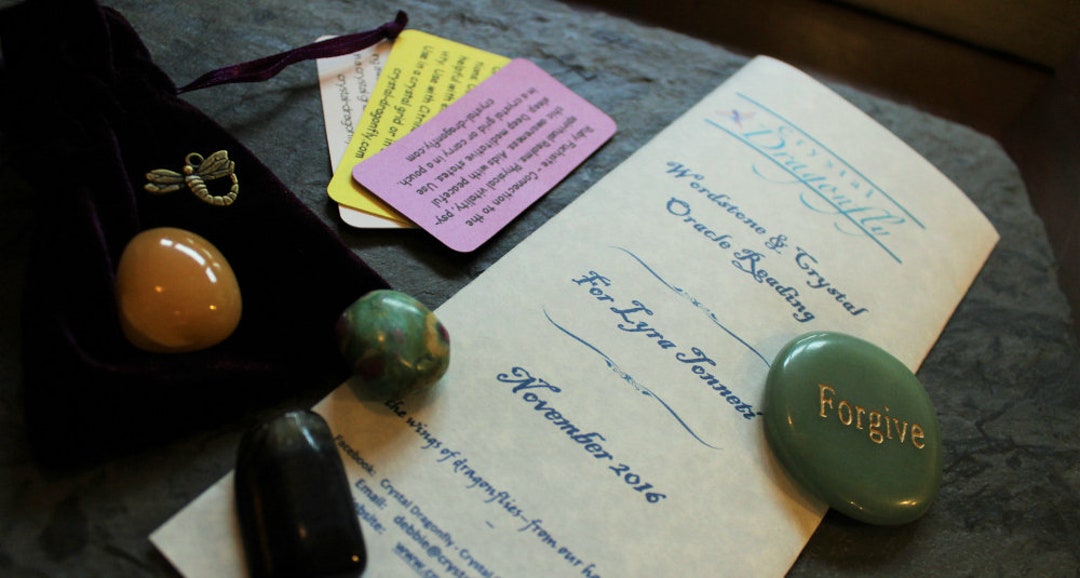 CRYSTAL
Dragonfly
Wordstone & Crystal
Oracle Reading
For Lyra Tonneti
November 2016
the wings of dragonflies-from our he
Facebook: Crystal Dragonfly - Crystal
Email: debbie@crystal
Website: www.cr
Forgive
Ruby Fuchsite - Connection to the
spiritual Realms. Physical vitality, psy-
chic awareness. Aids with peaceful
sleep. Deep meditative states. Use
in a crystal grid or carry in a pouch
crystal-dragonfly.com
helpful with
why. Use with Citrine
Use in a crystal grid or in
crystal-dragonfly.com
in a crystal
crystal-dragonfly